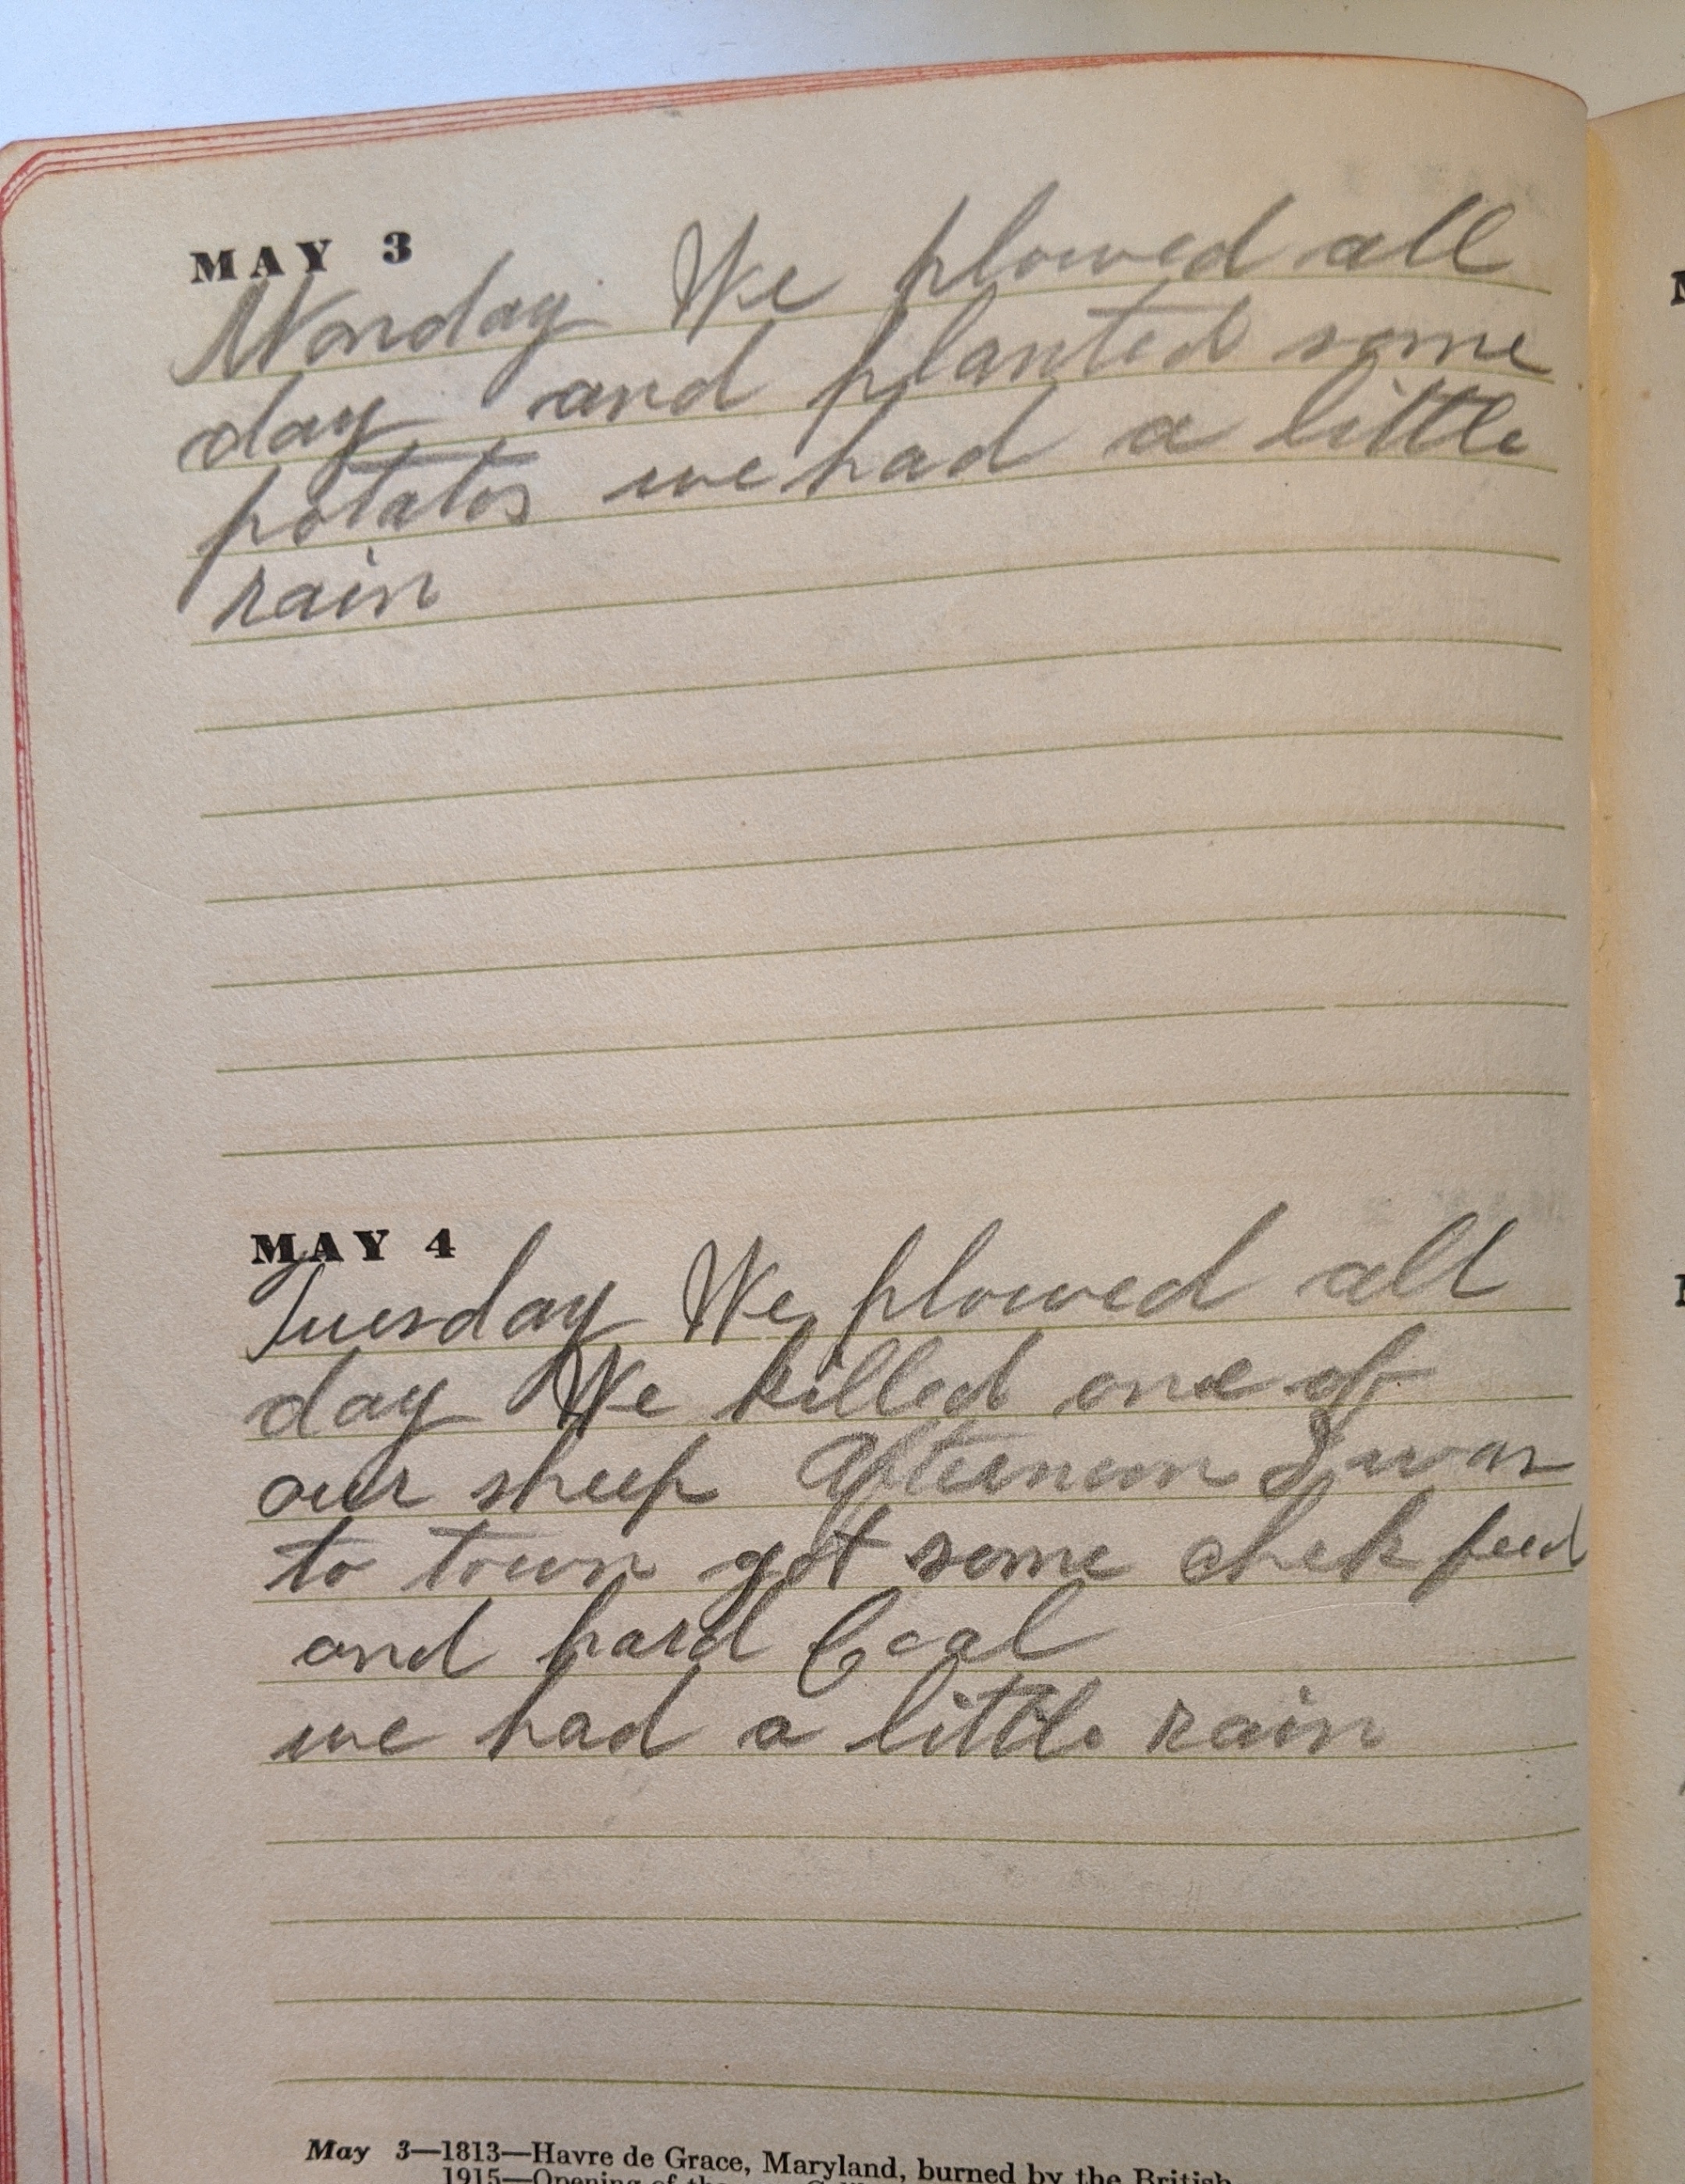 MAY 3
Monday We plowed all
day and planted some
potatos we had a little
rain
MAY 4
Tuesday We plowed all
day We killed one of
our sheep Afternoon I was
to town got some chek feed
and hard Coal
we had a little rain
May 3—1813—Havre de Grace, Maryland, burned by the British
1915—Opening of the